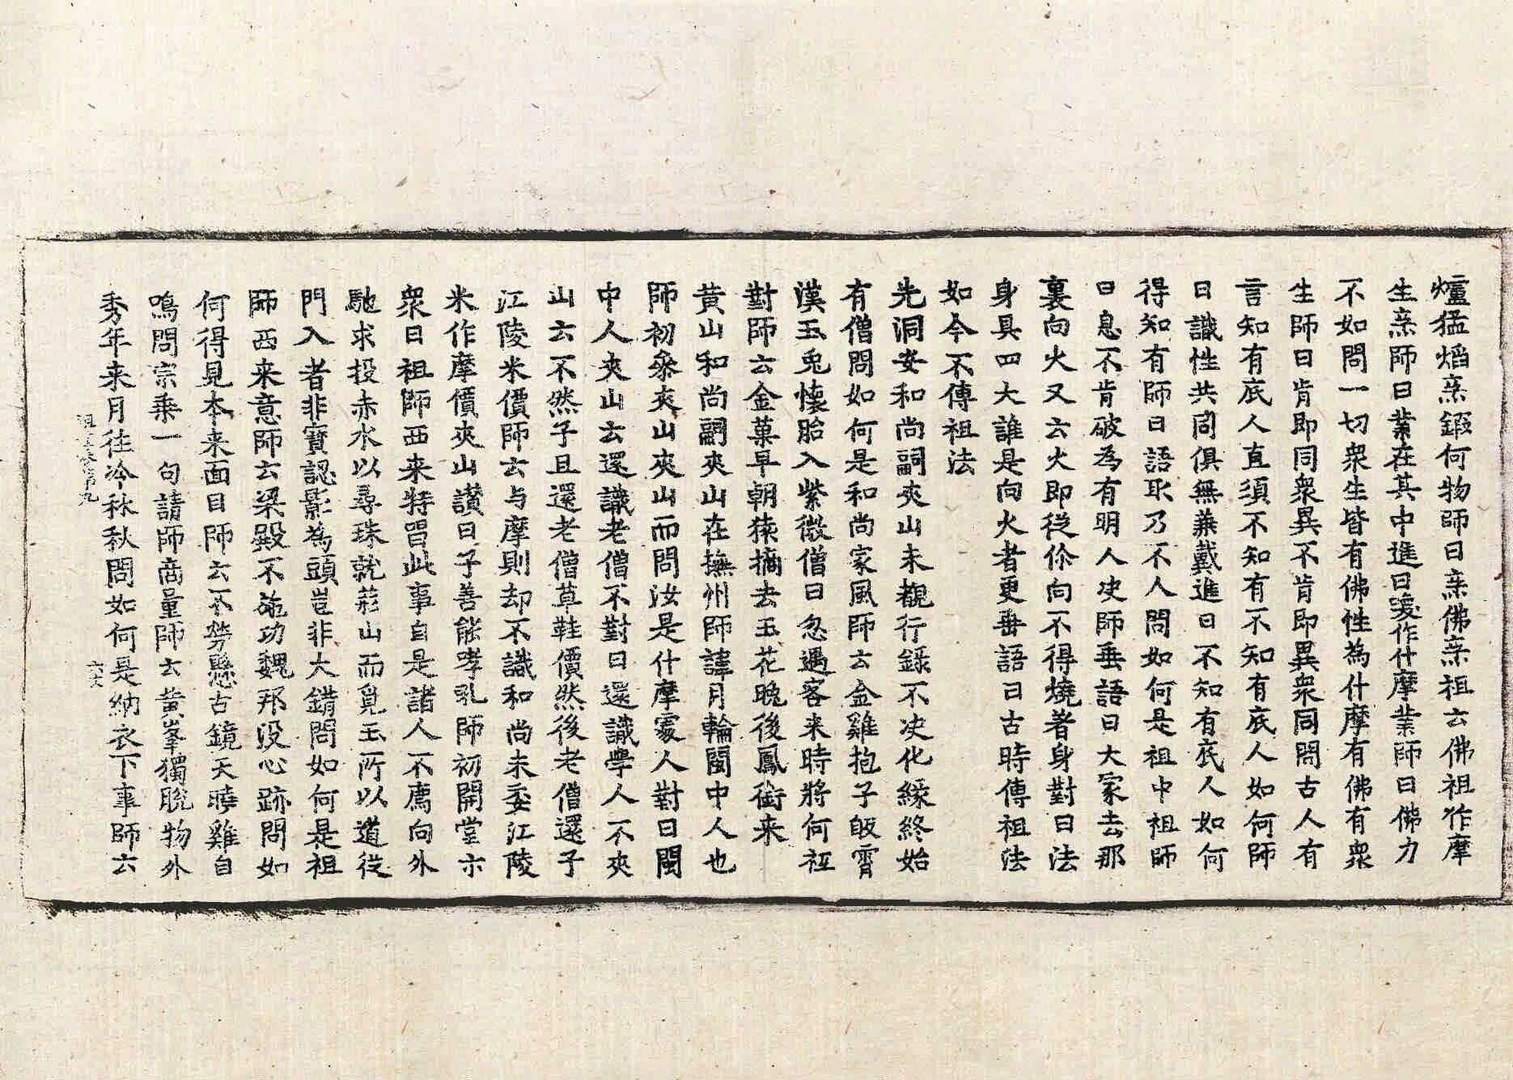 爐猛焰烹鍜何物師曰烹佛烹祖云佛祖作摩
生烹師曰業在其中進曰喚作什摩業師曰佛力
不如問一切衆生皆有佛性為什摩有佛有衆
生師曰肯即同衆異不肯即異衆同問古人有
言知有底人直須不知有不知有底人如何師
曰識性共同俱無兼戴進曰不知有底人如何
得知有師曰語取乃不人問如何是祖中祖師
曰息不肯破為有明人决師垂語曰大家去那
裏向火又云火即從你向不得燒著身對曰法
身具四大誰是向火者更垂語曰古時傳祖法
如今不傳祖法
先洞安和尚嗣夾山未覩行録不决化緣終始
有僧問如何是和尚家風師云金雞抱子皈霄
漢玉兎懐胎入紫微僧曰忽遇客来時將何秪
對師云金菓早朝猿摘去玉花晚後鳳銜来
黄山和尚嗣夾山在撫州師諱月輪閩中人也
師初叅夾山夾山而問汝是什摩處人對曰閩
中人夾山云還識老僧不對曰還識學人不夾
山云不然子且還老僧草鞋價然後老僧還子
江陵米價師云与摩則却不識和尚未委江陵
米作摩價夾山讃曰子善能哮吼師初開堂示
衆曰祖師西来特唱此事自是諸人不薦向外
馳求投赤水以尋珠就荊山而覓玉所以道從
門入者非寳認影為頭豈非大錯問如何是祖
師西来意師云梁殿不施功魏邦没心跡問如
何得見本来面目師云不勞懸古鏡天曉雞自
鳴問宗乗一句請師商量師云黄峯獨脱物外
秀年来月往冷秋秋問如何是納衣下事師云
祖堂集第九
六丈